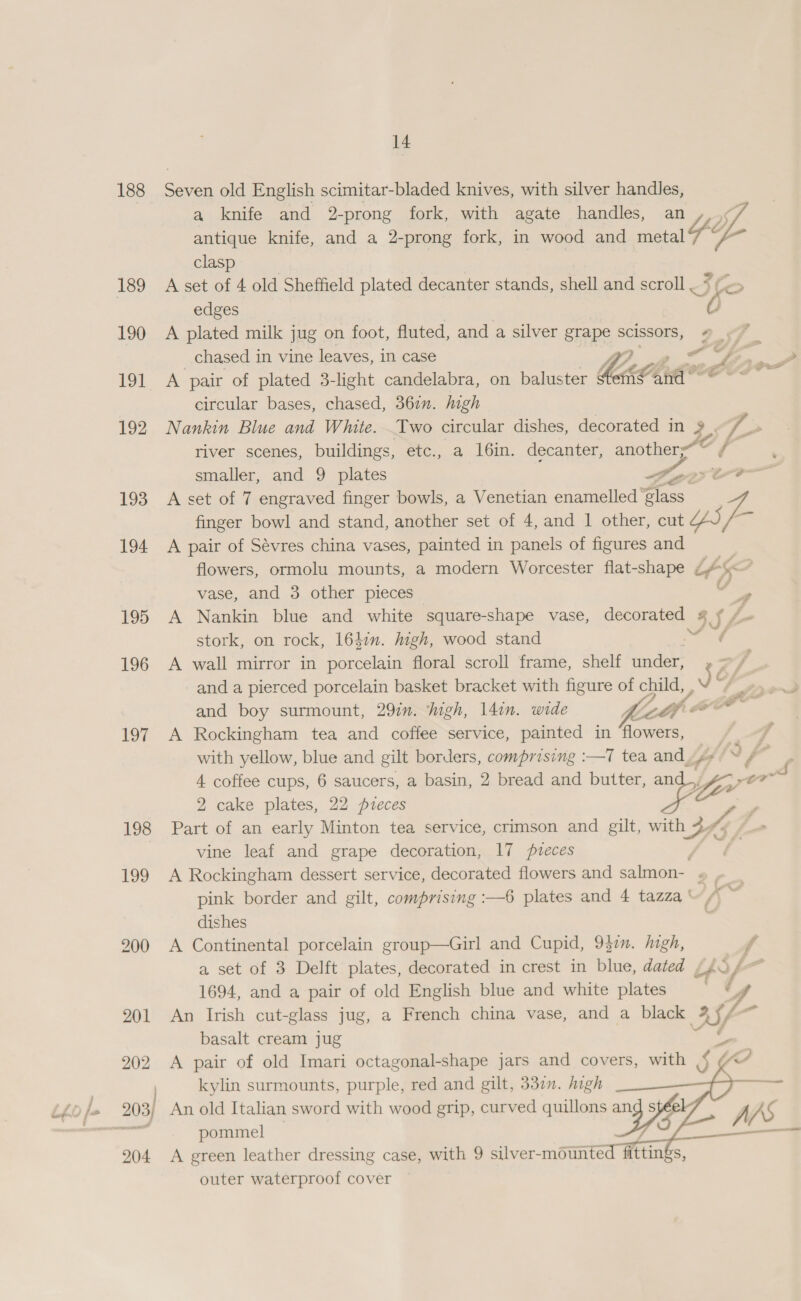 14
188 Seven old English scimitar-bladed knives, with silver handles,
a knife and 2-prong fork, with agate handles, an
antique knife, and a 2-prong fork, in wood and metal
clasp
189 A set of 4 old Sheffield plated decanter stands, shell and scroll
edges
190 A plated milk jug on foot, fluted, and a silver grape scissors,
chased in vine leaves, in case
191 A pair of plated 3-light candelabra, on baluster stems and
circular bases, chased, 36in. high
192 Nankin Blue and White. Two circular dishes, decorated in
river scenes, buildings, etc., a 16in. decanter, another,
smaller, and 9 plates
193 A set of 7 engraved finger bowls, a Venetian enamelled glass
finger bowl and stand, another set of 4, and 1 other, cut
194 A pair of Sévres china vases, painted in panels of figures and
flowers, ormolu mounts, a modern Worcester flat-shape
vase, and 3 other pieces
195 A Nankin blue and white square-shape vase, decorated
stork, on rock, 16½in. high, wood stand
196 A wall mirror in porcelain floral scroll frame, shelf under,
and a pierced porcelain basket bracket with figure of child,
and boy surmount, 29in. high, 14in. wide
197 A Rockingham tea and coffee service, painted in flowers,
with yellow, blue and gilt borders, comprising :—7 tea and
4 coffee cups, 6 saucers, a basin, 2 bread and butter, and
2 cake plates, 22 pieces
198 Part of an early Minton tea service, crimson and gilt, with
vine leaf and grape decoration, 17 pieces
199 A Rockingham dessert service, decorated flowers and salmon-
pink border and gilt, comprising :—6 plates and 4 tazza
dishes
200 A Continental porcelain group—Girl and Cupid, 9½in. high,
a set of 3 Delft plates, decorated in crest in blue, dated
1694, and a pair of old English blue and white plates
201 An Irish cut-glass jug, a French china vase, and a black
basalt cream jug
202 A pair of old Imari octagonal-shape jars and covers, with
kylin surmounts, purple, red and gilt, 33in. high
203 An old Italian sword with wood grip, curved quillons and steel
pommel
204 A green leather dressing case, with 9 silver-mounted fittings,
outer waterproof cover